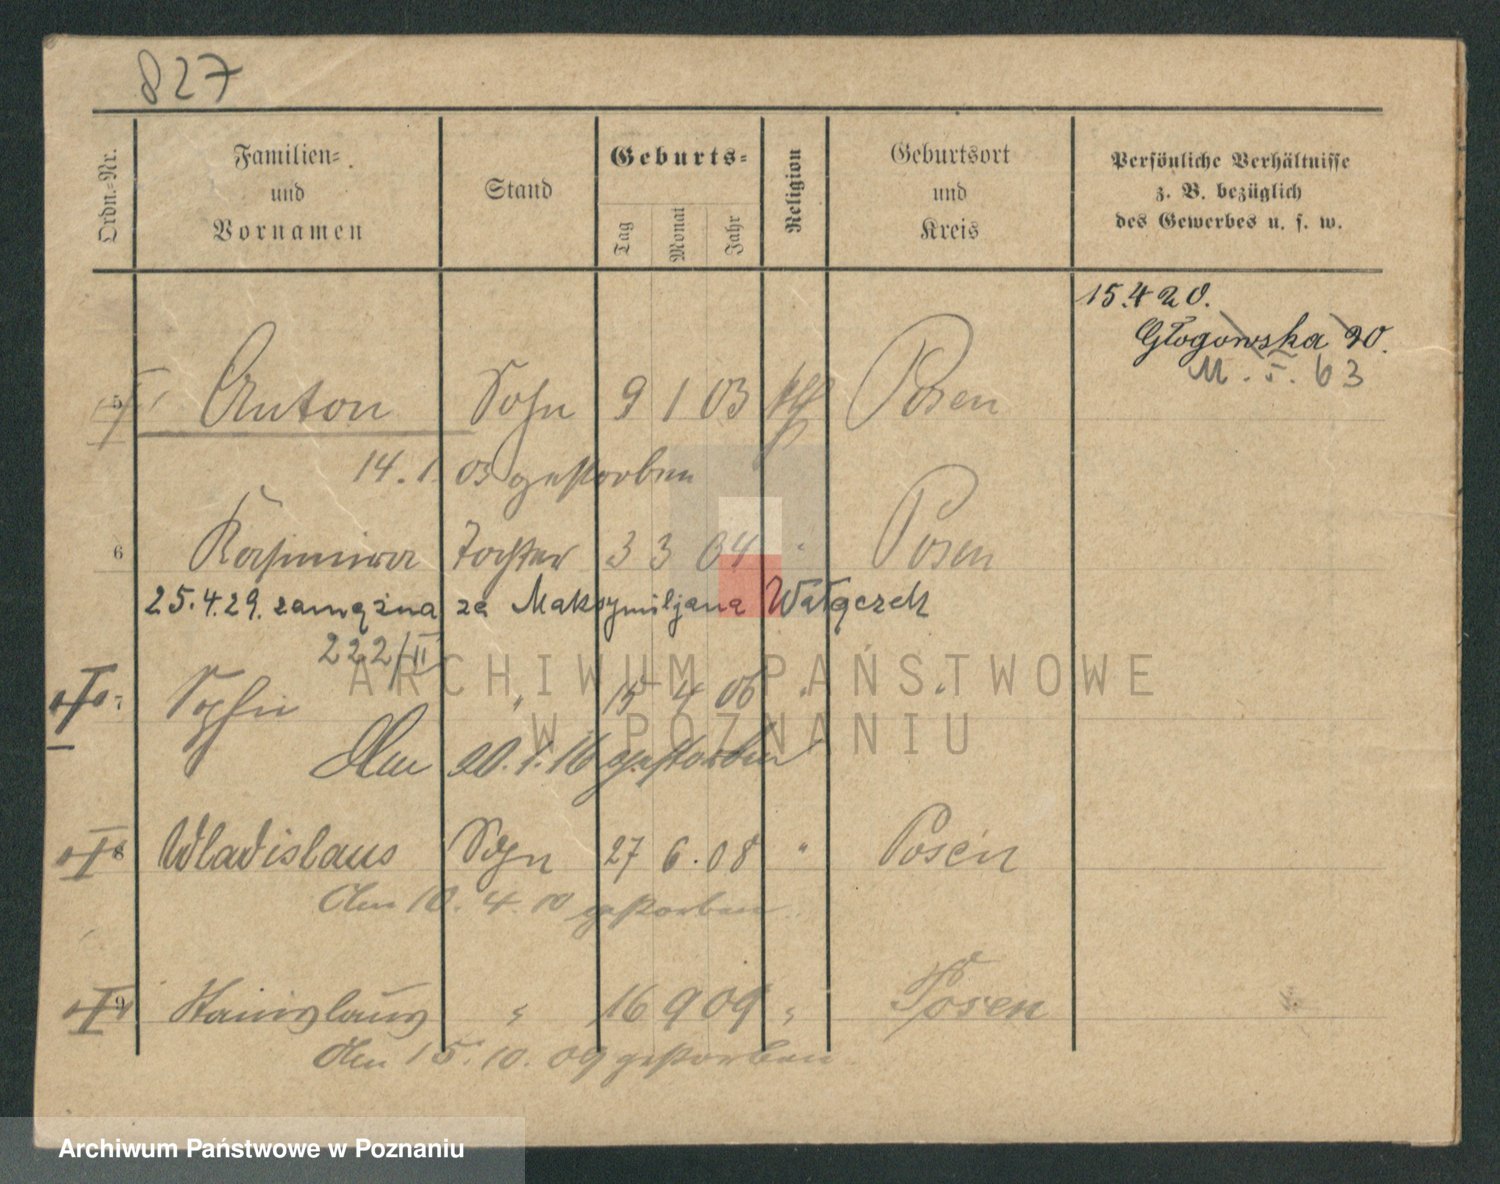 827
Ordn.-Nr.
Familien-
und
Vornamen
Stand
Geburts-
Tag
Monat
Jahr
Religion
Geburtsort
und
Kreis
Persönliche Verhältnisse
z. B. bezüglich
des Gewerbes u. s. w.
15.4 20.
Głogowska 20.
M. I. 63
5 Anton Sohn 9 1 03 kth Posen
14. 1 03 gestorben
6 Kasimira Tochter 3 3 04 " Posen
25.4.29. zamężna za Maksymiljana Wałęczek
222/II
7 Sophie " 15 4 06 " "
Am 20. 1. 16 gestorben
8 Wladislaus Sohn 27 6. 08 " Posen
Am 10. 4. 10 gestorben
9 Stanislaus " 16 9 09 " Posen
Am 15. 10. 09 gestorben
ARCHIWUM PAŃSTWOWE
W POZNANIU
Archiwum Państwowe w Poznaniu